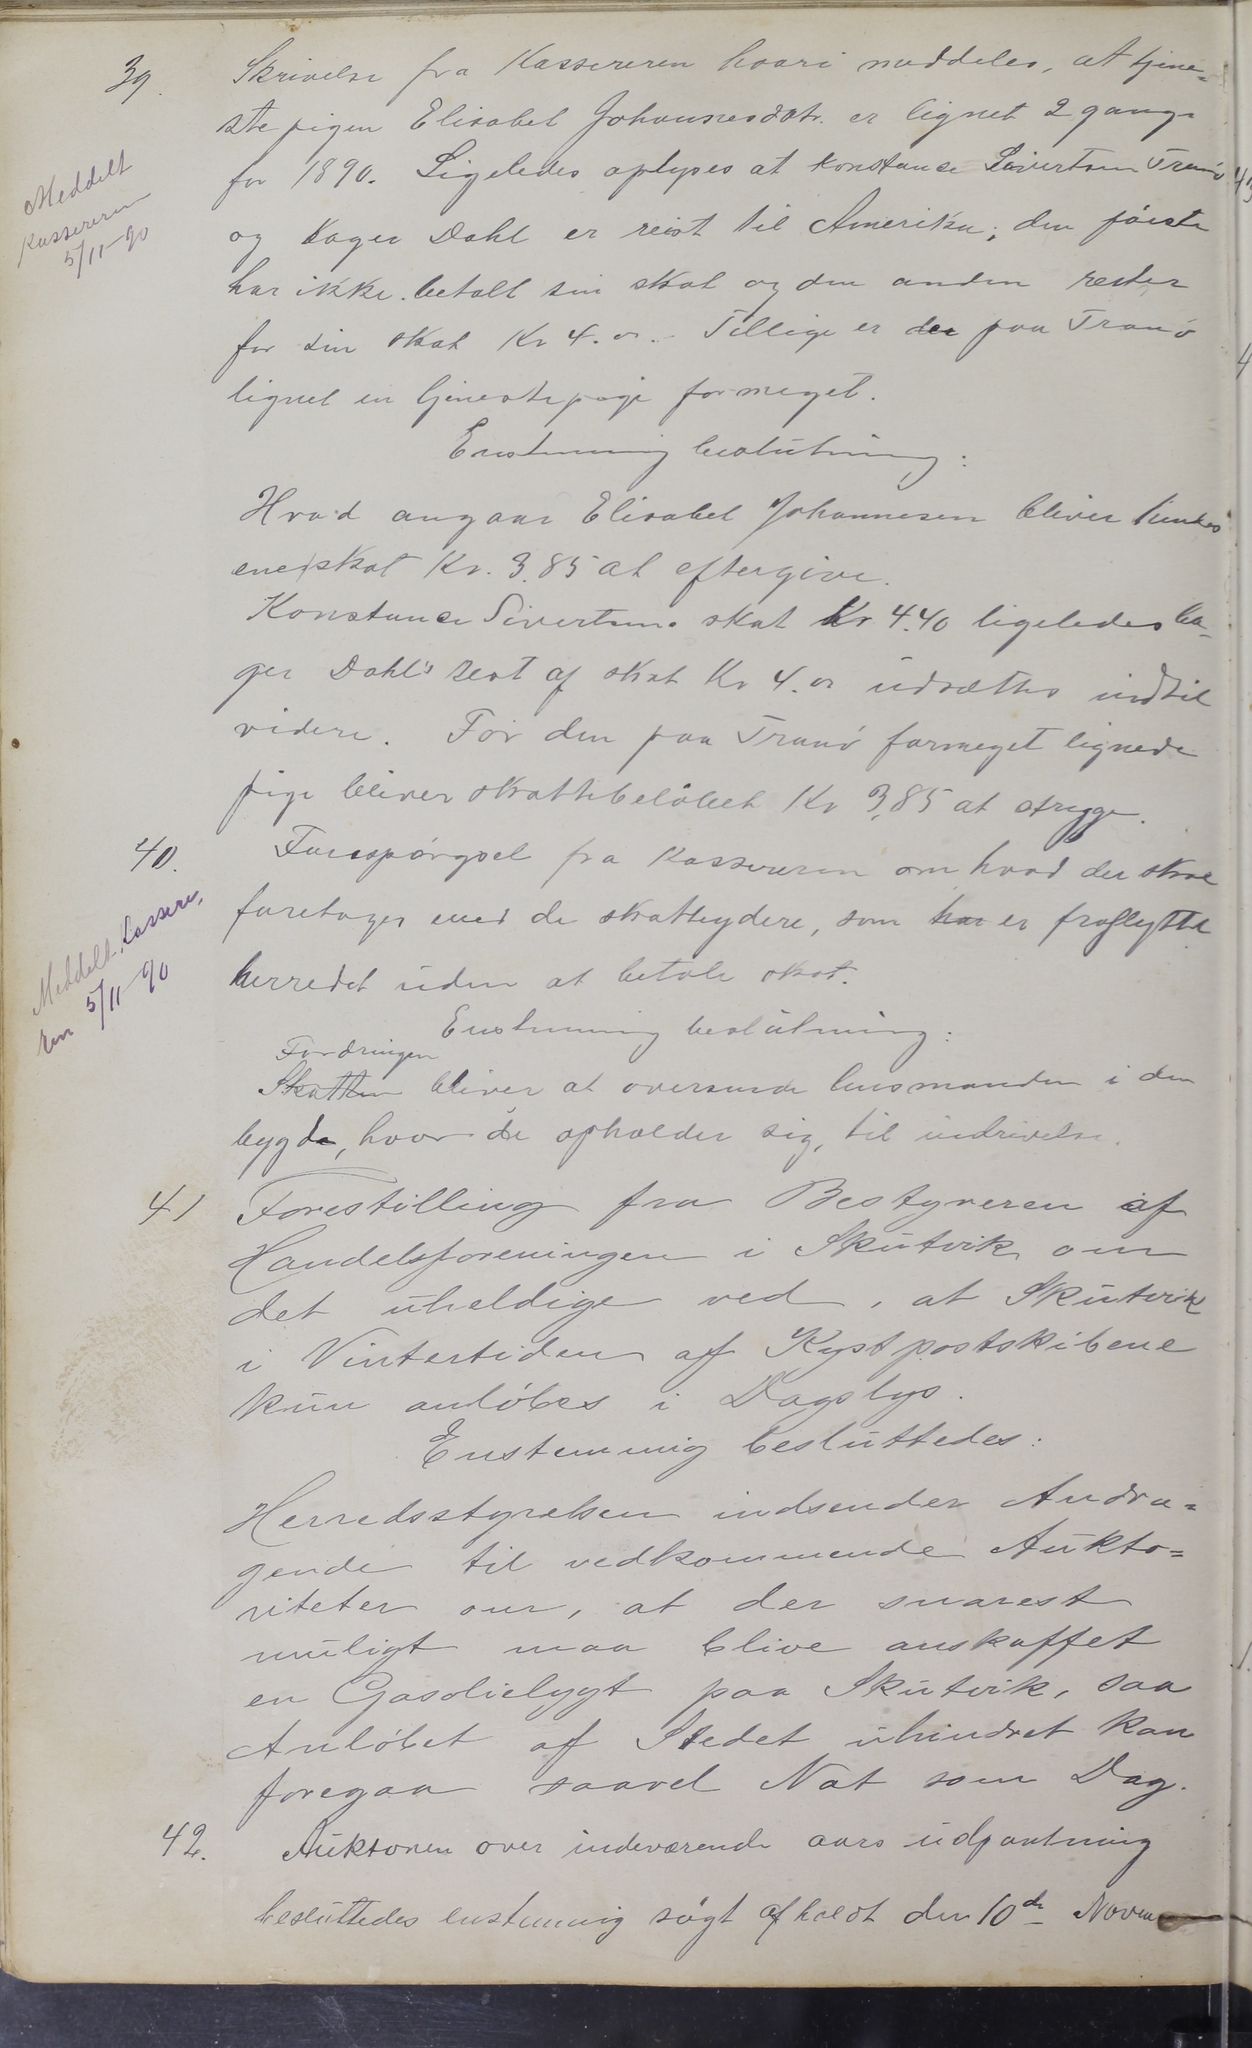 39. Skrivelse fra Kassereren hvori meddeles, at tjene-
ste pigen Elisabet Johannesdatr. er lignet 2 gange
for 1890. Ligeledes oplyses at Konstanse Sivertsen Tranö
og Kager Dahl er reist til Amerika; den förste
har ikke betalt sin skat og den anden rester
for sin skat Kr 4.00.- Tillige er der paa Tranö
lignet en tjenestepige formeget.
Meddelt
Kassereren
5/11-90
Enstemmig beslutning:
Hvad angaar Elisabet Johannesen bliver hendes
ene skat Kr. 3.85 at eftergive.
Konstanse Sivertsens skat Kr 4.40 ligeledes Ka-
ger Dahl's rest af skat Kr 4.00 udsættes indtil
videre. For den paa Tranö formeget lignede
pige bliver skattebelöbet Kr 3,85 at afrygge.
40. Forespörgsel fra Kassereren om hvad der skal
foretages med de skatteydere, som har er fraflyttet
herredet uden at betale skat.
Meddelt Kassere,
ren 5/11-90
Enstemmig beslutning:
Fordringen
Skatten bliver at oversende lensmanden i den
bygde, hvor de opholder sig, til inddrivelse.
41 Forestilling fra Bestyreren af
Handelsforeningen i Skutvik om
det uheldige ved, at Skutvik
i Vintertiden af Kystpostskibene
kun anlöbes i Dagslys.
Enstemmig besluttedes:
Herredsstyrelsen indsender Andra-
gende til vedkommende Aukto-
riteter om, at der snarest
muligt maa blive anskaffet
en Gasolielygt paa Skutvik, saa
Anlöbet af Stedet uhindret kan
foregaa saavel Nat som Dag.
42. Auktionen over indeværende aars udpantning
besluttedes enstemmig sögt afholdt den 10de Novem